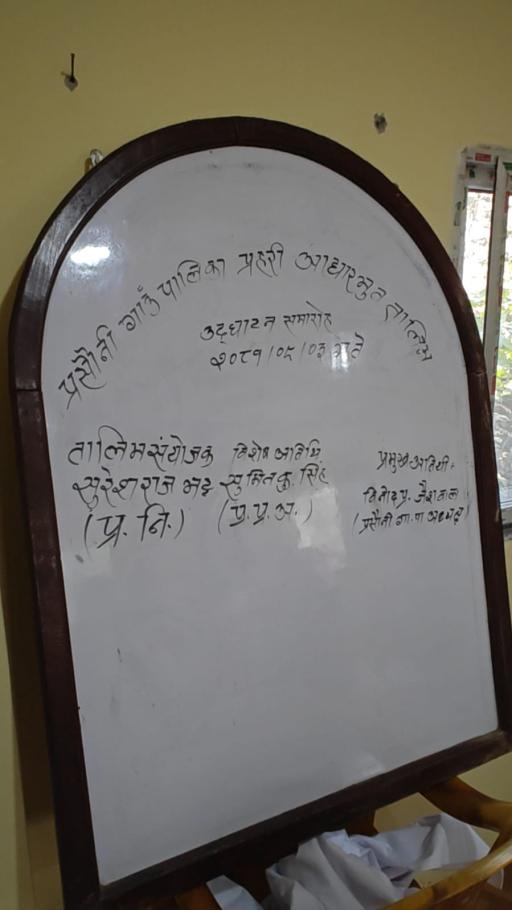 प्रसौनी गाउँ पालिका प्रहरी आधारभुत तालिम
उद्घाटन समारोह
२०८१/०८/०३ गते
तालिम संयोजक
सुरेश राज भट्ट
(प्र. नि.)
विशेष अतिथि
सुमित कु. सिंह
(प्र. प्र. अ.)
प्रमुख अतिथी:
विनोद प्र. जैशवाल
(प्रसौनी गा. पा अध्यक्ष)